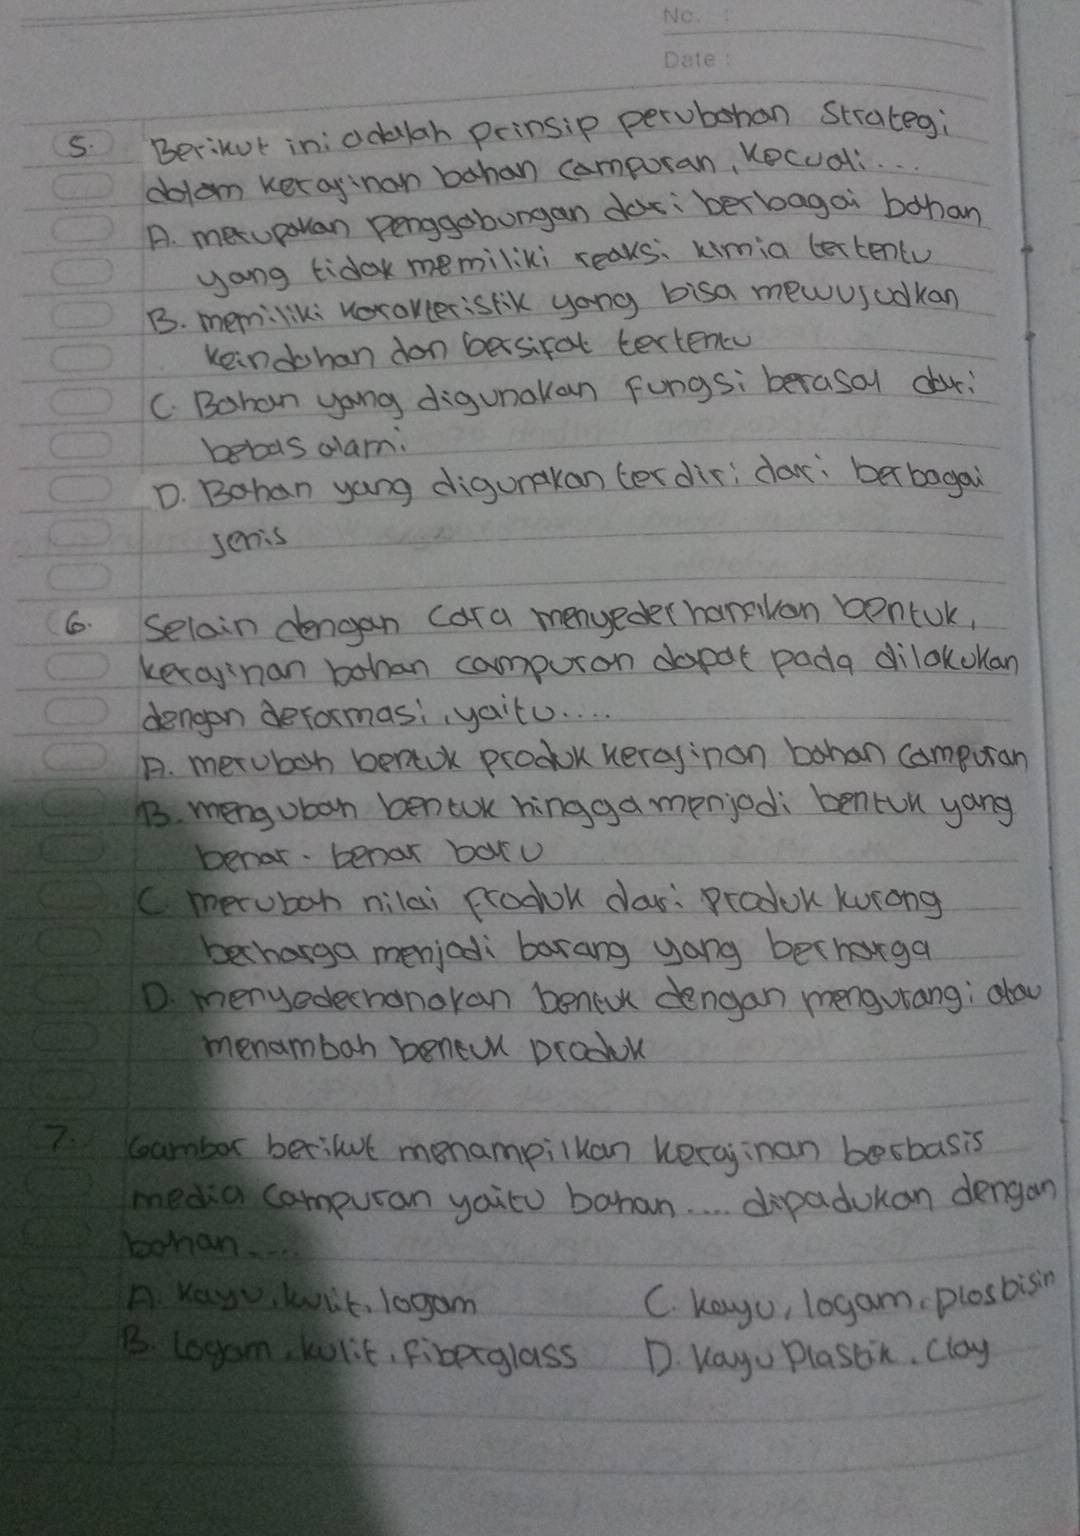 No. :
Date :
5. Berikut ini adalah prinsip perubahan Strategi
dalam kerajinan bahan campuran, kecuali...
A. merupakan penggabungan dari berbagai bahan
yang tidak memiliki reaksi kimia tertentu
B. memiliki karakteristik yang bisa mewujudkan
keindahan dan bersifat tertentu
C. Bahan yang digunakan fungsi berasal dari
bebas alami
D. Bahan yang digunakan terdiri dari berbagai
jenis
6. Selain dengan cara menyederhanakan bentuk,
kerajinan bahan campuran dapat pada dilakukan
dengan deformasi, yaitu....
A. merubah bentuk produk kerajinan bahan campuran
B. mengubah bentuk hingga menjadi bentuk yang
benar-benar baru
C. merubah nilai produk dari produk kurang
berharga menjadi barang yang berharga
D. menyederhanakan bentuk dengan mengurangi atau
menambah bentuk produk
7. Gambar berikut menampilkan kerajinan berbasis
media campuran yaitu bahan.... dipadukan dengan
bahan....
A. kayu, kulit, logam C. kayu, logam, plosbisin
B. Logam, kulit, fiberglass D. kayu Plastik, Clay